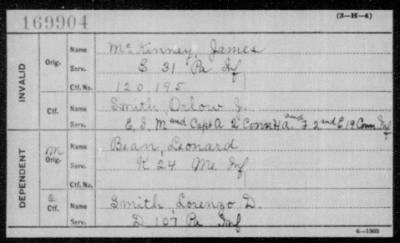 169904
(3-H-4)
INVALID
Orig.
Name McKinney, James
Serv. E 31 Pa Inf
Ctf. No. 120195
Ctf.
Name Smith, Orlow J.
Serv. E, S, M and Capt A 2" Conn H a and F 2nd E 19 Conn Inf
DEPENDENT
M Orig.
Name Bean, Leonard
Serv. K 24 Me Inf
Ctf. No.
Ctf.
Name Smith, Lorenzo D.
Serv. D 107 Pa Inf